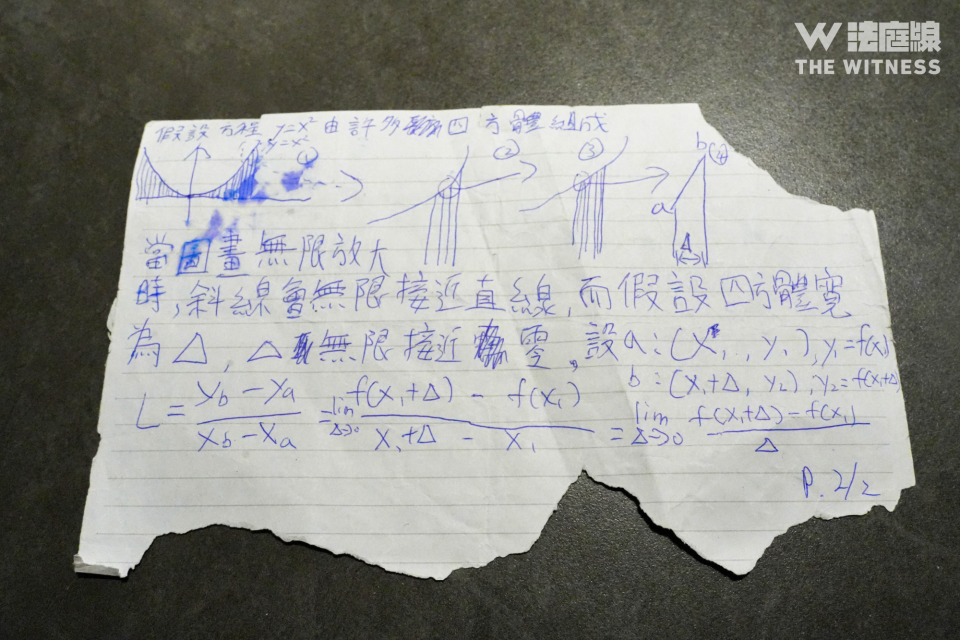 法庭線
THE WITNESS
假設方程 y=x² 由許多四方體組成
y=x²
①
②
③
b ④
a
Δ
當圖畫無限放大
時,斜線會無限接近直線,而假設四方體寬
為 Δ, Δ 無限接近零,設 a:(x₁, y₁), y₁=f(x₁)
b:(x₁+Δ, y₂), y₂=f(x₁+Δ)
L = (y_b - y_a)/(x_b - x_a) = lim Δ→0 (f(x₁+Δ) - f(x₁))/(x₁+Δ - x₁) = lim Δ→0 (f(x₁+Δ) - f(x₁))/Δ
P. 2/2